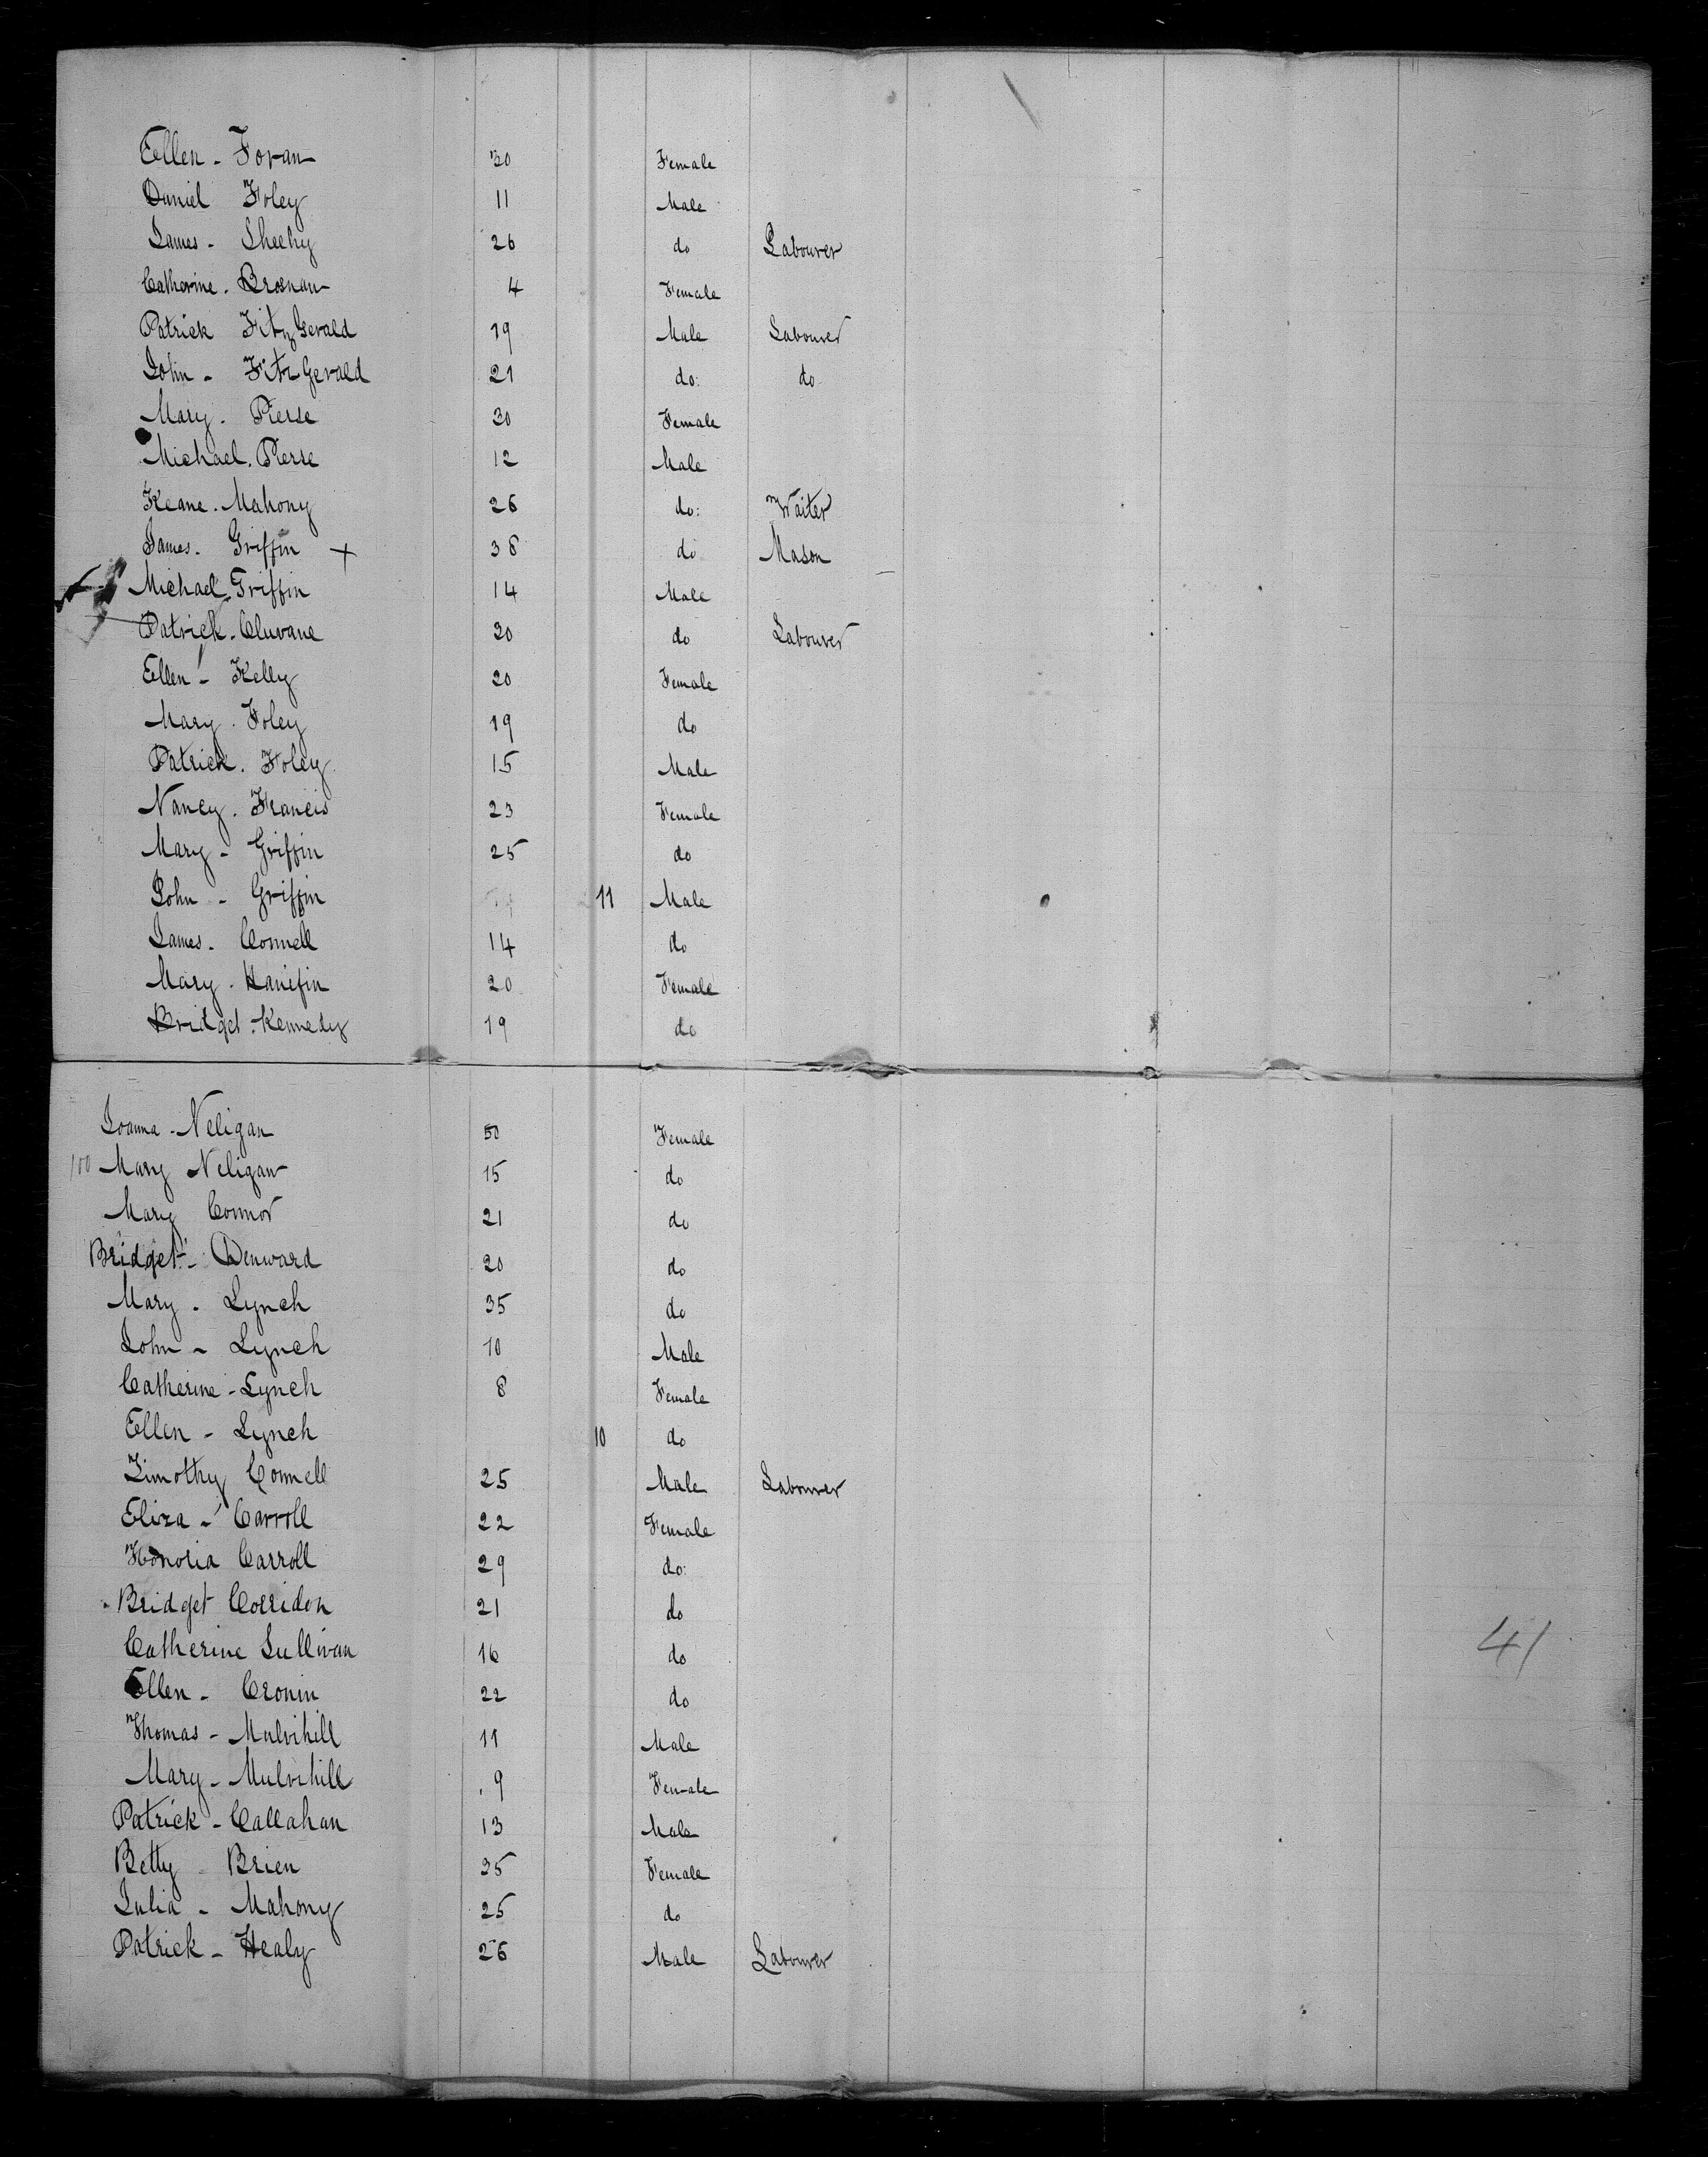 Ellen - Foran 30 Female
Daniel Foley 11 Male
James - Sheehy 26 do Labourer
Catherine . Brosnan 4 Female
Patrick FitzGerald 19 Male Labourer
John - FitzGerald 21 do: do
Mary . Pierse 30 Female
Michael . Pierse 12 Male
Keane . Mahony 26 do: Waiter
James . Griffin + 38 do Mason
Michael Griffin 14 Male
Patrick . Cluvane 20 do Labourer
Ellen - Kelly 20 Female
Mary . Foley 19 do
Patrick . Foley 15 Male
Nancy . Francis 23 Female
Mary - Griffin 25 do
John - Griffin 11 Male
James . Connell 14 do
Mary . Hanifin 20 Female
Bridget . Kennedy 19 do
Joanna - Neligan 50 Female
100 Mary Neligan 15 do
Mary Connor 21 do
Bridget - Denward 20 do
Mary . Lynch 35 do
John - Lynch 10 Male
Catherine - Lynch 8 Female
Ellen - Lynch 10 do
Timothy Connell 25 Male Labourer
Eliza - Carroll 22 Female
Honoria Carroll 29 do:
Bridget Corridon 21 do
Catherine Sullivan 16 do
41
Ellen - Cronin 22 do
Thomas - Mulvihill 11 Male
Mary - Mulvihill 9 Female
Patrick - Callahan 13 Male
Betty - Brien 35 Female
Julia - Mahony 25 do
Patrick - Healy 26 Male Labourer